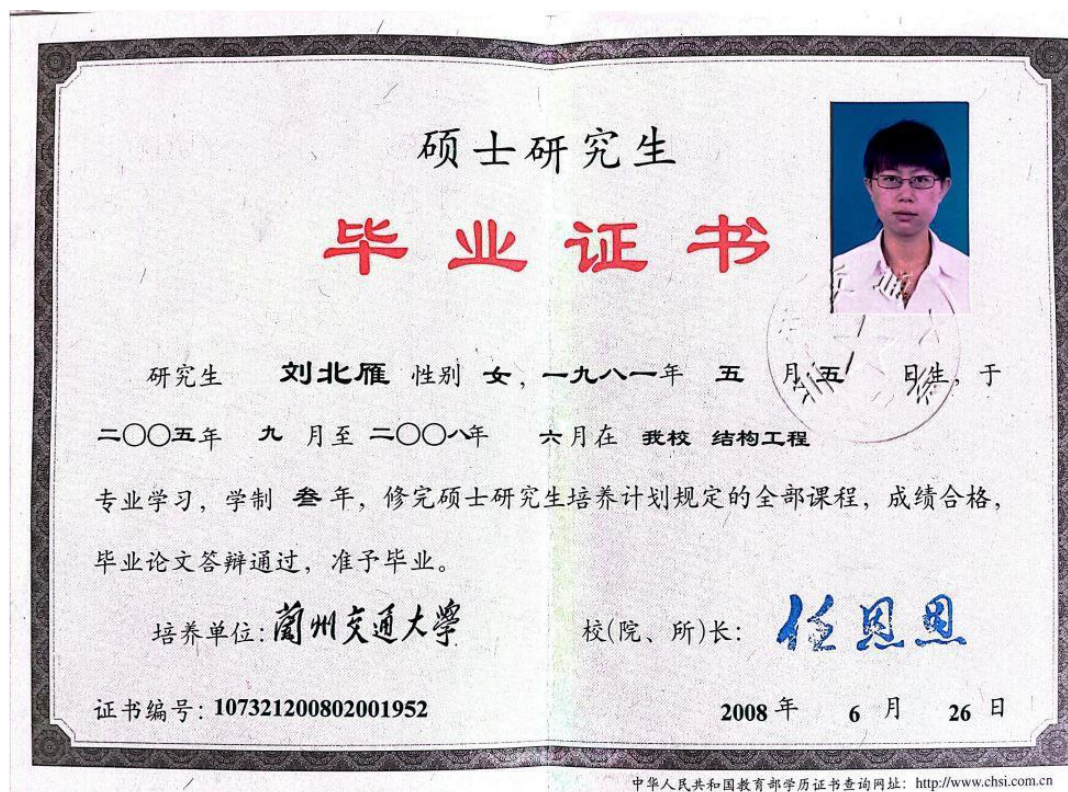 硕士研究生
毕业证书
研究生 刘北雁 性别 女，一九八一年 五 月 五 日生，于
二〇〇五年 九 月至 二〇〇八年 六月在 我校 结构工程
专业学习，学制 叁 年，修完硕士研究生培养计划规定的全部课程，成绩合格，
毕业论文答辩通过，准予毕业。
培养单位：蘭州交通大學 校(院、所)长：任恩恩
证书编号：107321200802001952 2008 年 6 月 26 日
中华人民共和国教育部学历证书查询网址：http://www.chsi.com.cn